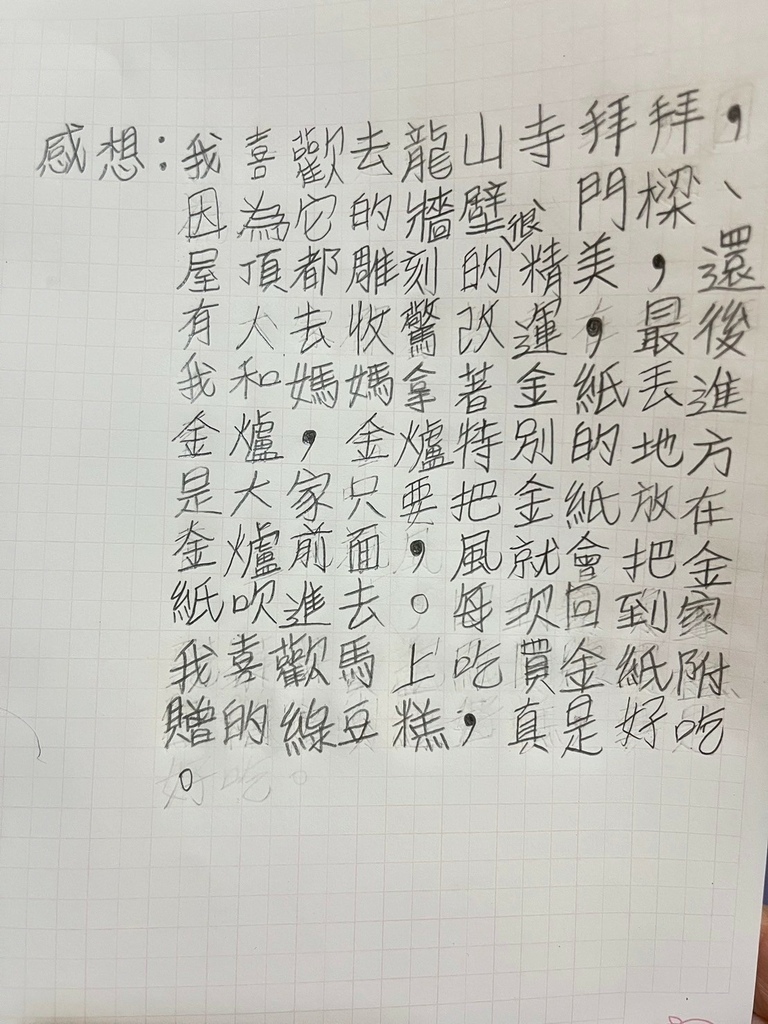 感想：我喜歡去龍山寺拜拜，
因為它的牆壁、門樑、
屋頂都雕刻的很精美，還
有人去收驚改運，最後
我和媽媽拿著金紙丟進
金爐，金爐特別的地方
是大家只要把金紙放在
金爐前面，風就會把金
紙吹進去。每次回到家
我喜歡馬上吃買金紙附
贈的綠豆糕，真是好吃
。